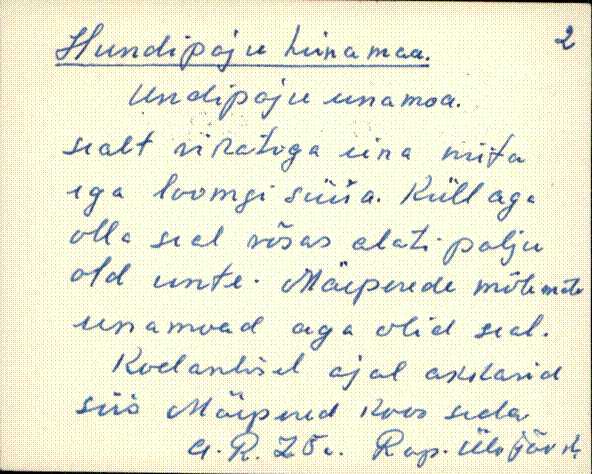 2
Hundipaju hinamaa.
Undipaju unamoa.
sealt vikatuga eina niita
ega loomgi süüa. Küll aga
olla seal võsas alati palju
old unte. Mäeperede mõlemate
unamoad aga olid seal.
Koelantisel ajal akkasid
siis Mäepered koos seda
a. R. 25a. Rap.